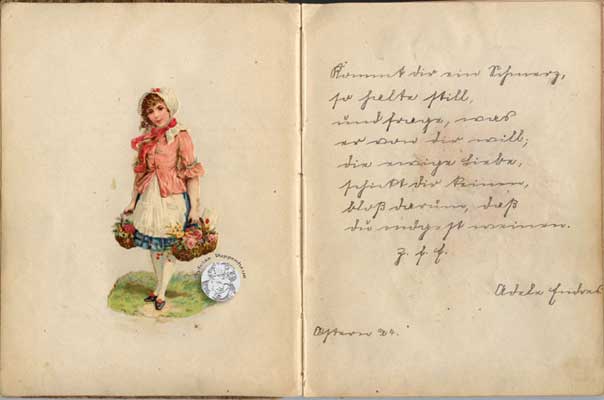 Kommt dir ein Schmerz,
so halte still,
und frage, was
er von dir will;
die ewige Liebe,
schickt dir keinen,
bloß darum, daß
du mögest weinen.
Z. f. E.
Adele Endres
Ostern 24.